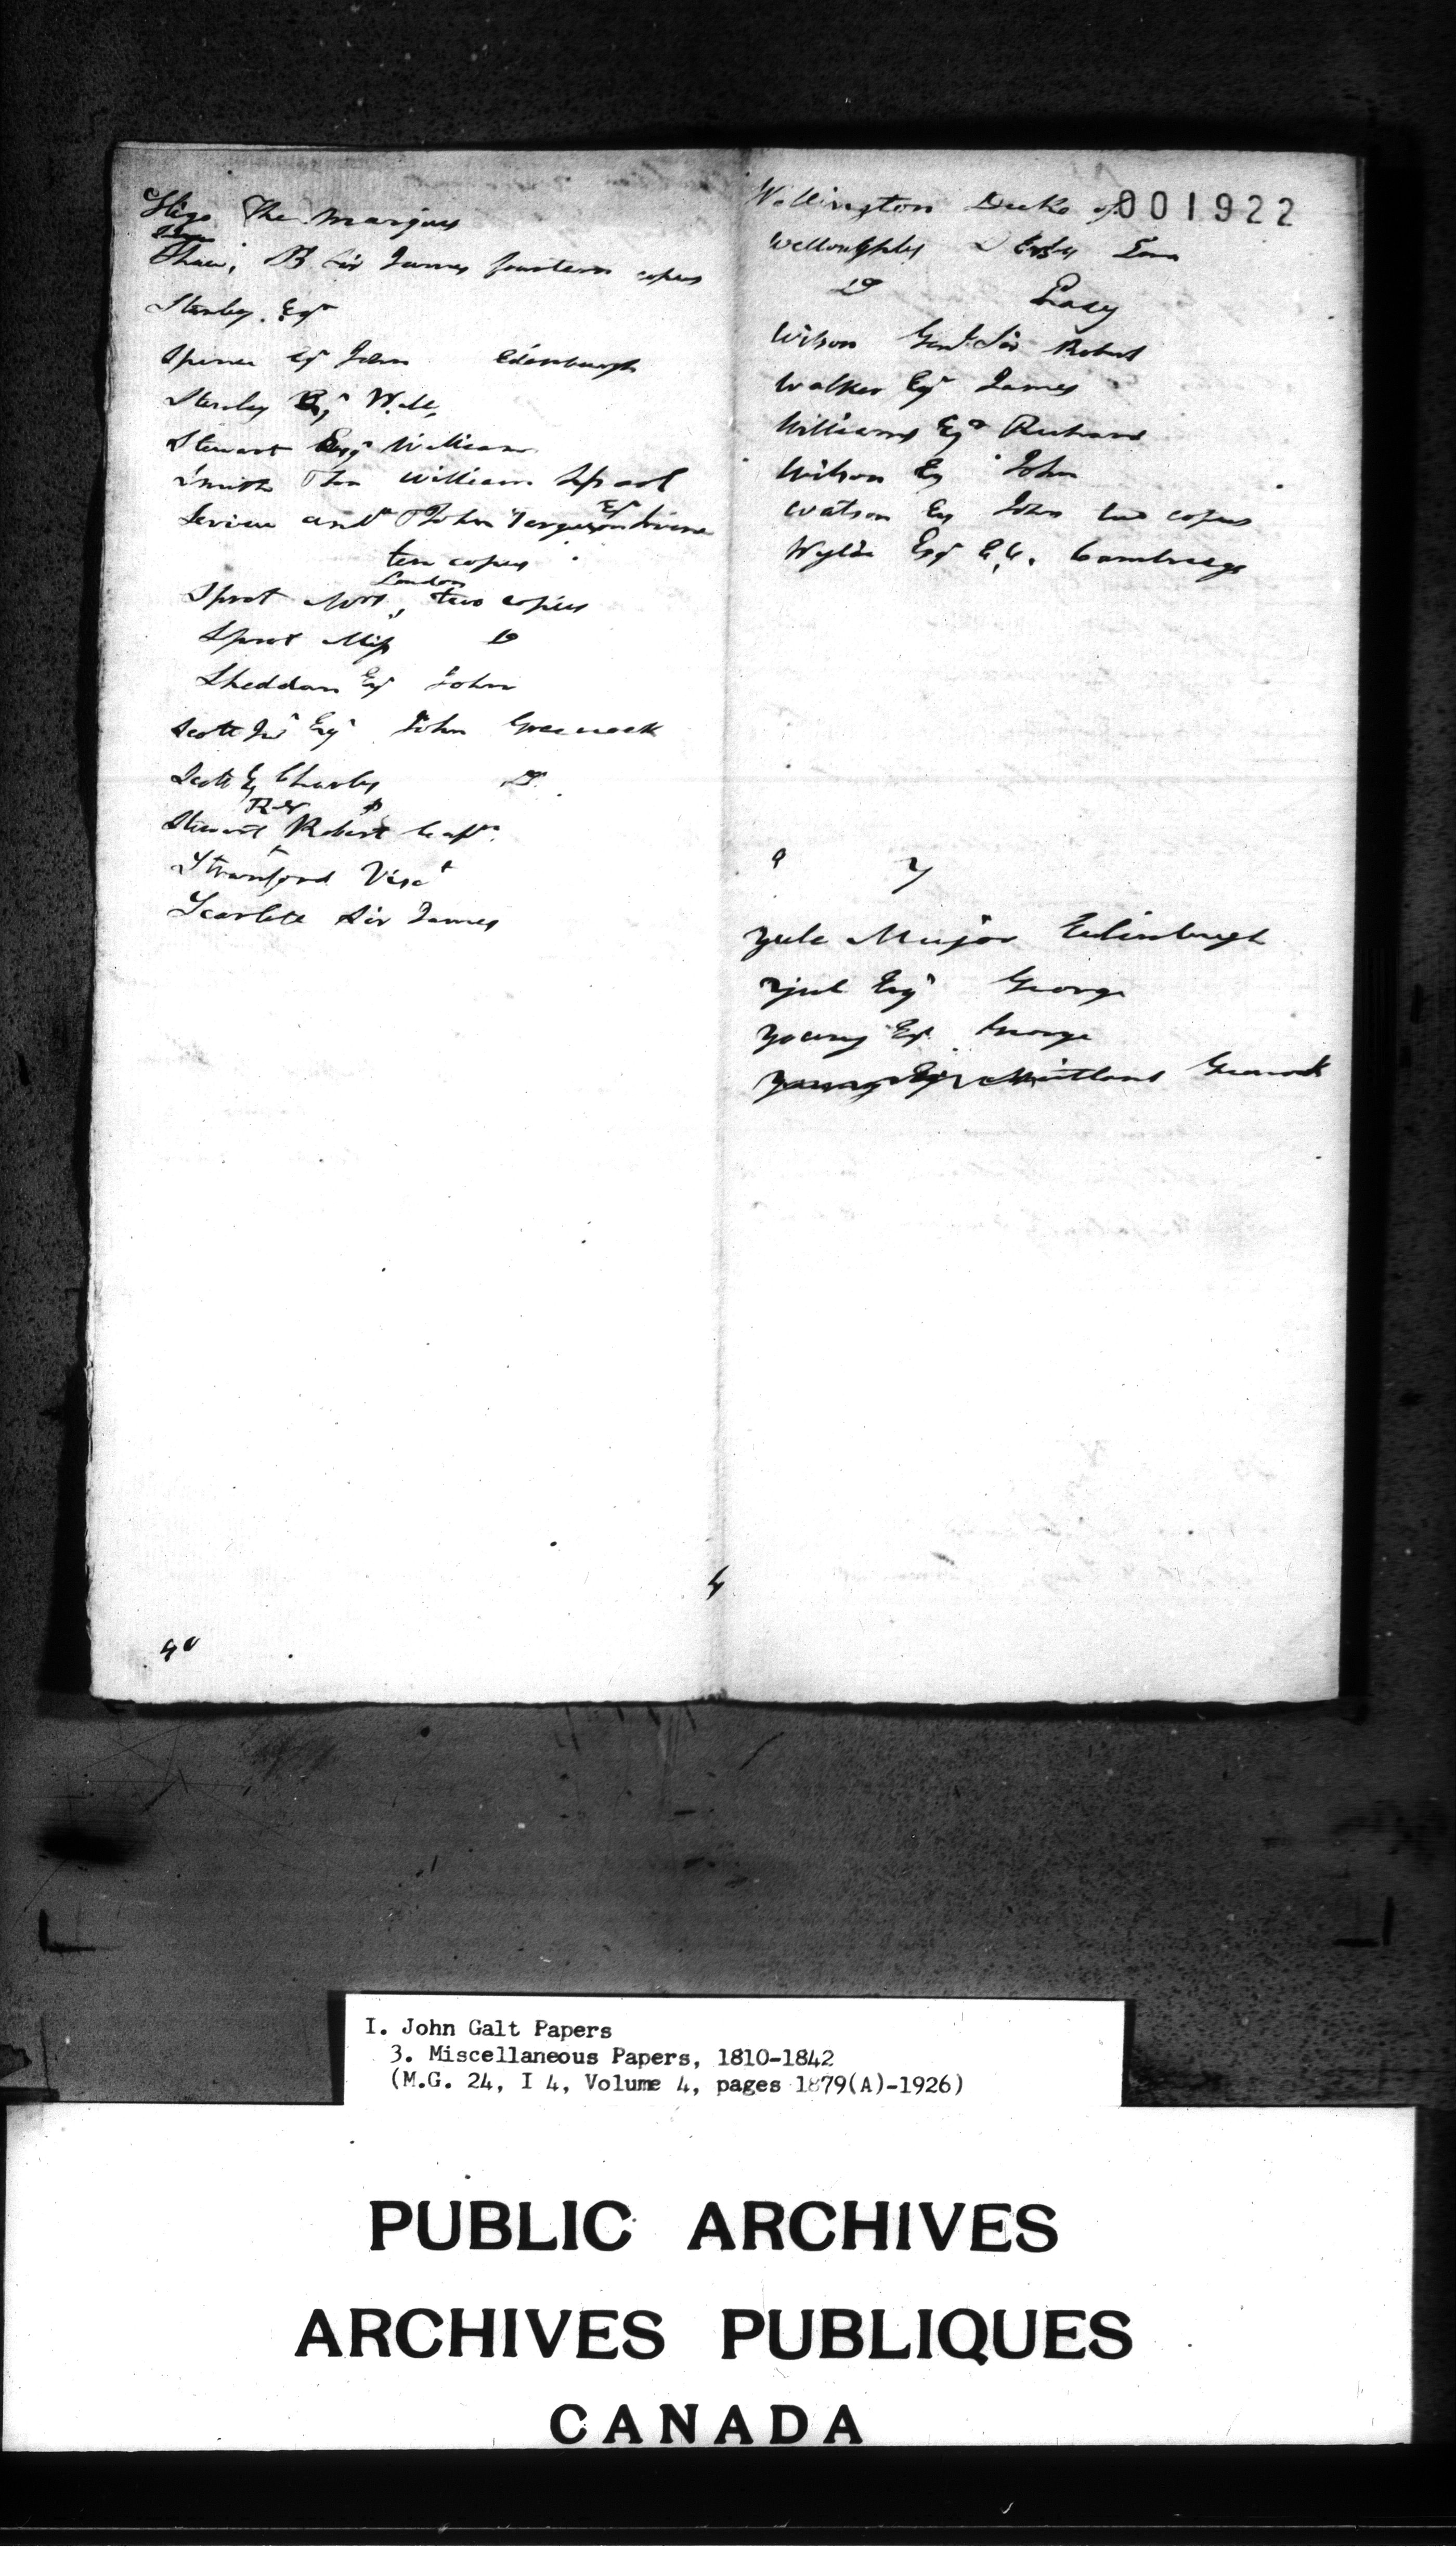 Sligo The Marquis
Shaw, B Sir James fourteen copies
Stanley Esqr
Spence Esqr John Edenburgh
Stanley Esqr Will
Stewart Esqr William
Smith Thn William Lpool
and John Ferguson Esqr Irvine
ten copies
Sprot Mrs, London two copies
Sprot Miss Do
Sheddan Esqr John
Scott Junr Esqr John Greenock
Scott Esq Charles Do
Stewart Robert Captn
Strangford Visct
Scarlett Sir James
40
Wellington Duke of 001922
Willoughby D Ersby Lord
Do Lady
Wilson Genl Sir Robert
Walker Esqr James
Williams Esqr Richard
Wilson Esq John
Watson Esq John two copies
Wylde Esqr Cambridge
Y
Yule Major Edinburgh
Esqr George
Young Esqr George
Young Esqr Maitland Greenock
4
I. John Galt Papers
3. Miscellaneous Papers, 1810-1842
(M.G. 24, I 4, Volume 4, pages 1879(A)-1926)
PUBLIC ARCHIVES
ARCHIVES PUBLIQUES
CANADA